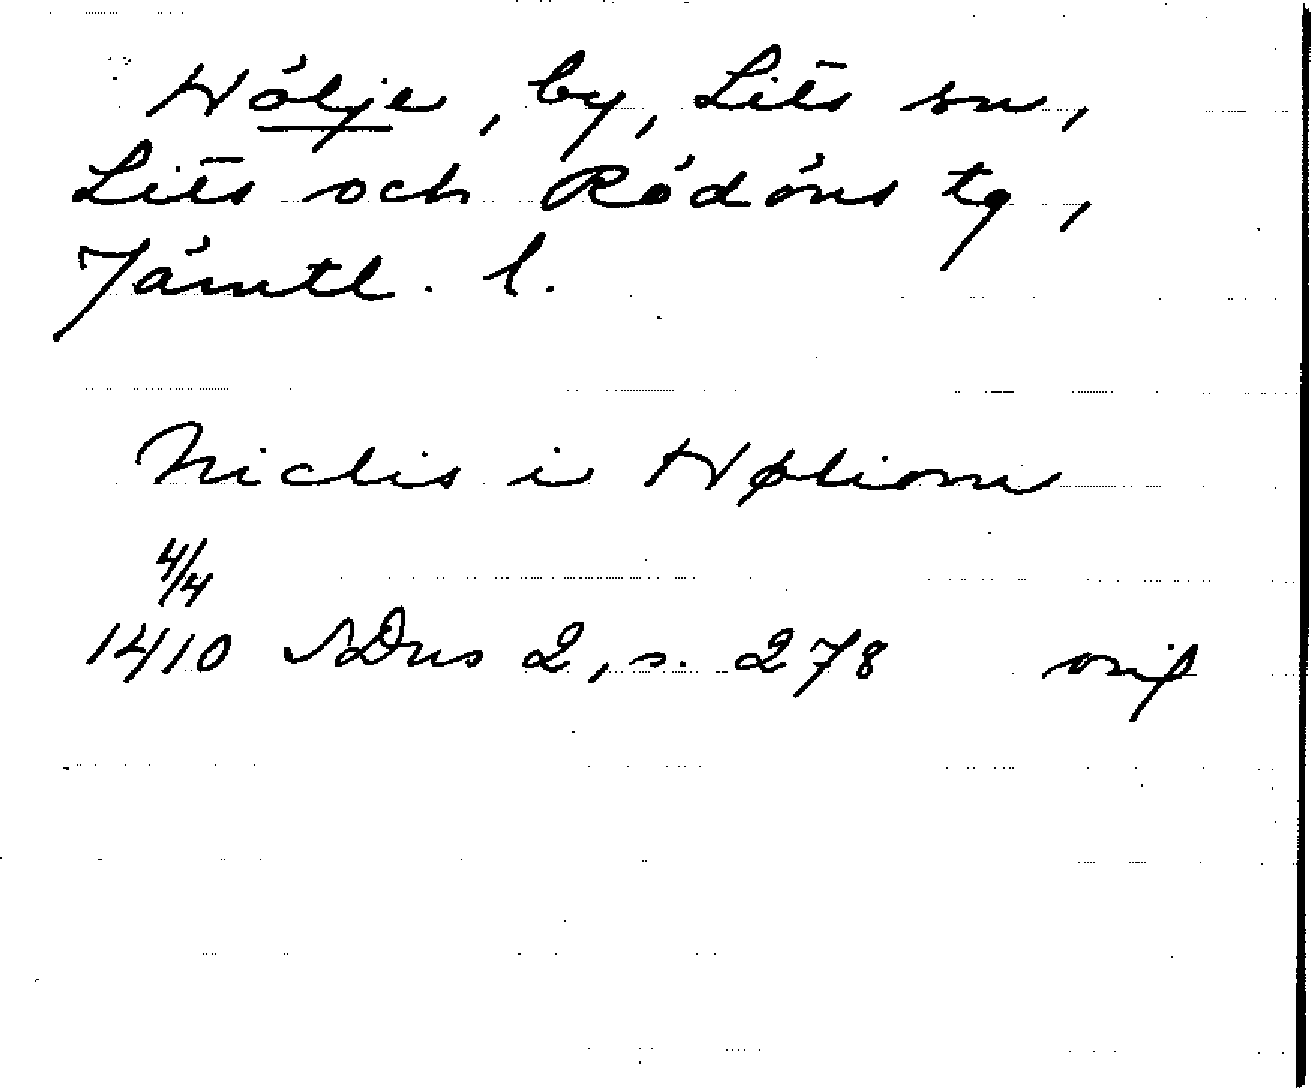 Hölje, by, Lits sn,
Lits och Rödöns tg,
Jämtl. l.
Niclis i Høliom
4/4
1410 SDns 2, s. 278 orig